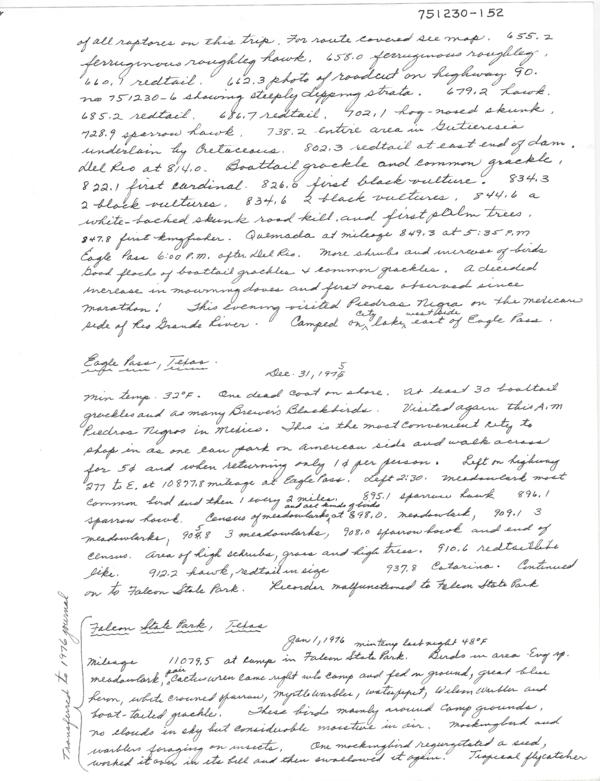 751230-152
of all raptores on this trip. For route covered see map. 655.2
ferruginous roughleg hawk. 658.0 ferruginous roughleg.
660.9 redtail. 662.3 photo of roadcut on highway 90.
no 751230-6 showing steeply dipping strata. 679.2 hawk.
685.2 redtail. 686.7 redtail. 702.1 hog-nosed skunk.
728.9 sparrow hawk. 738.2 entire area in Gutieresia
underlain by Cretaceous. 802.3 redtail at east end of dam.
Del Rio at 814.0. Boattail grackle and common grackle,
822.1 first cardinal. 826.6 first black vulture. 834.3
2 black vultures. 834.6 2 black vultures. 844.6 a
white-backed skunk road kill, and first palm trees.
847.8 first kingfisher. Quemada at mileage 849.3 at 5:35 P.M
Eagle Pass 6:00 P.M. after Del Rio. More shrubs and increase of birds
Good flock of boattail grackles & common grackles. A decided
increase in mourning doves and first ones observed since
Marathon! This evening visited Piedras Nigra on the mexican
side of Rio Grande River. Camped on city lake, west side east of Eagle Pass.
Eagle Pass, Texas.
Dec. 31, 1975
Min temp. 32°F. One dead coot on shore. At least 30 boattail
grackles and as many Brewer's Blackbirds. Visited again this A.M
Piedras Nigros in Mexico. This is the most convenient city to
shop in as one can park on American side and walk across
for 5¢ and when returning only 1¢ per person. Left on highway
277 to E. at 10877.8 mileage at Eagle Pass. Left 2:30. Meadowlark most
common bird and then 1 every 2 miles. 895.1 sparrow hawk 896.1
sparrow hawk. Census of meadowlarks and all kinds of birds at 898.0. meadowlark, 909.1 3
meadowlarks, 905.8 3 meadowlarks, 908.0 sparrow hawk and end of
census. Area of high schrubs, grass and high trees. 910.6 redtail
like. 912.2 hawk, redtail in size 937.8 Catarina. Continued
on to Falcon State Park. Recorder malfunctioned to Falcon State Park
Transferred to 1976 journal
Falcon State Park, Texas
Jan 1, 1976 min temp last night 48°F
Mileage 11079.5 at camp in Falcon State Park. Birds in area Eng sp.
meadowlark, pair Cactus wren came right into camp and fed on ground, great blue
heron, white crowned sparrow, Myrtle Warbler, water pipit, Wilson Warbler and
boat-tailed grackle. These birds mainly around camp grounds.
no clouds in sky but considerable moisture in air. Mockingbird and
warblers foraging on insects. One mockingbird regurgitated a seed,
worked it over in its bill and then swallowed it again. Tropical flycatcher